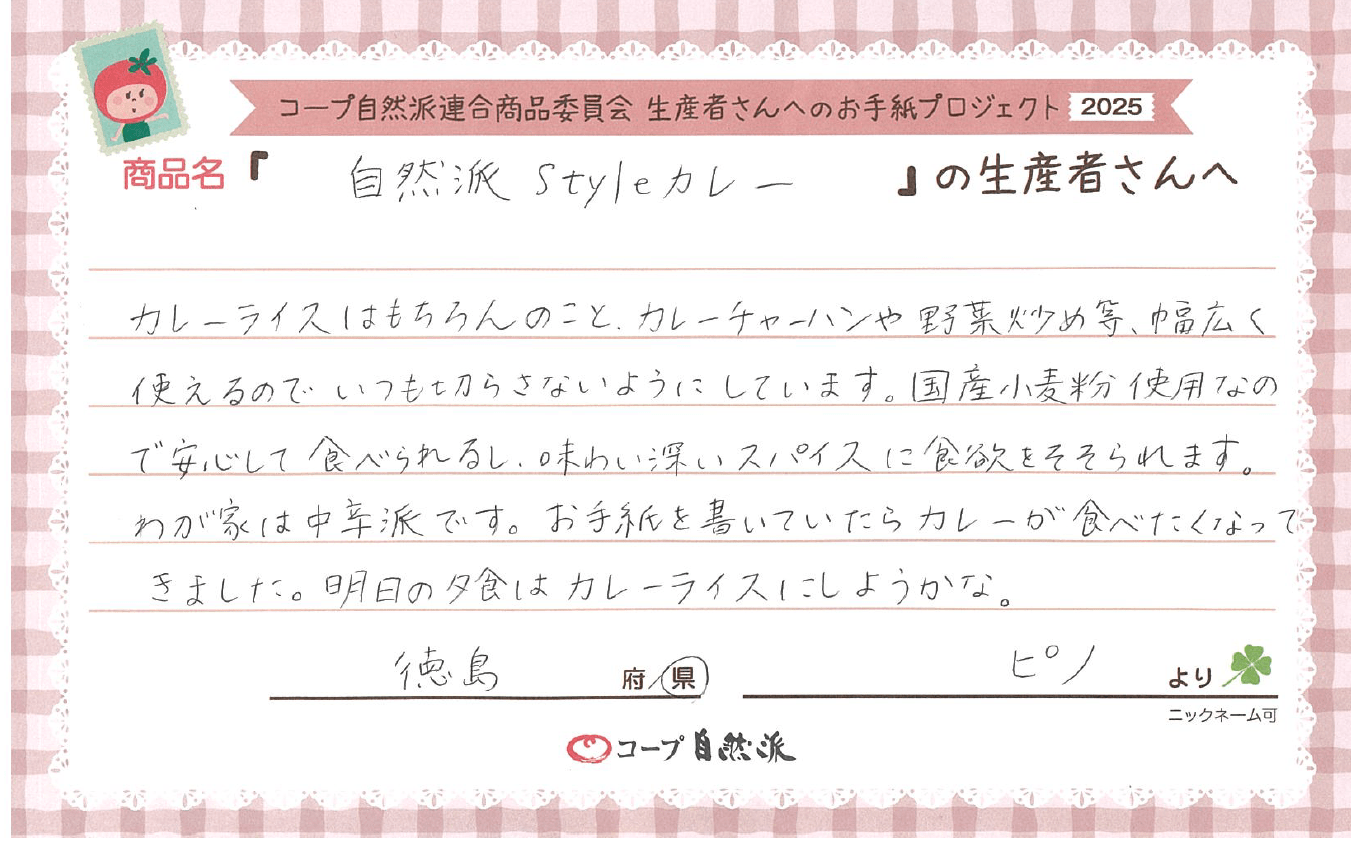 コープ自然派連合商品委員会 生産者さんへのお手紙プロジェクト 2025
商品名『 自然派Styleカレー 』の生産者さんへ
カレーライスはもちろんのこと、カレーチャーハンや野菜炒め等、幅広く
使えるので いつも切らさないようにしています。国産小麦粉使用なの
で安心して食べられるし、味わい深いスパイスに食欲をそそられます。
わが家は中辛派です。お手紙を書いていたらカレーが食べたくなって
きました。明日の夕食はカレーライスにしようかな。
徳島 府/県 ピノ より
ニックネーム可
コープ自然派